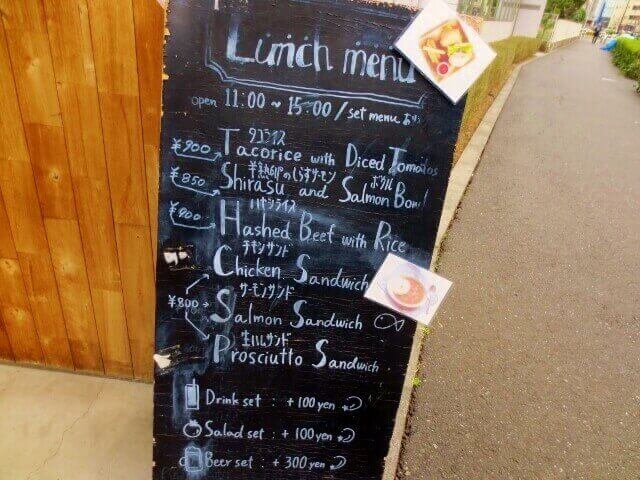 Lunch menu
open 11:00 ~ 15:00 / set menu あり
タコライス
¥900 Tacorice with Diced Tomatoes
のしらすサーモンボウル
¥850 Shirasu and Salmon Bowl
ハヤシライス
¥900 Hashed Beef with Rice
チキンサンド
Chicken Sandwich
サーモンサンド
¥800 Salmon Sandwich
生ハムサンド
Prosciutto Sandwich
Drink set : +100yen
Salad set : +100yen
Beer set : +300yen